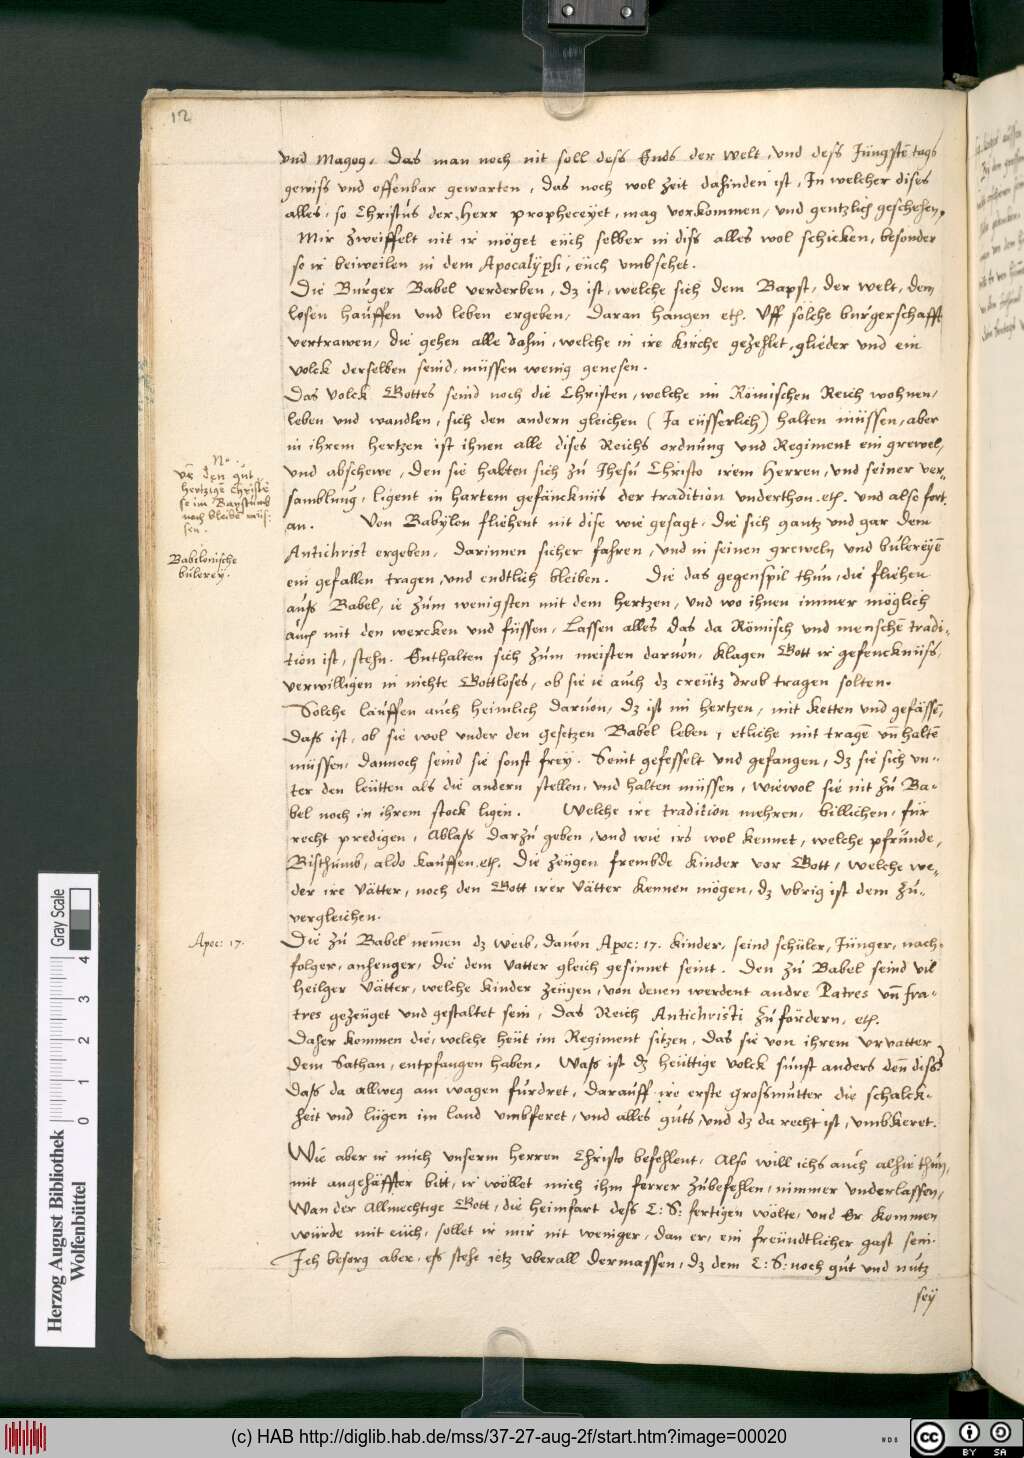 12
vnd Magog. Das man noch nit soll dess Ends der welt, vnd dess Jüngstē tags
gewiss vnd offenbar gewarten, das noch wol zeit dahinden ist, In welcher dises
alles, so Christus der Herr propheceyet, mag vorkommen, vnd gentzlich geschehen.
Mir zweiffelt nit ir möget eüch selber in diss alles wol schicken, besonder
so ir beiweilen in dem Apocalÿpsi, eüch vmbsehet.
Die Burger Babel verderben, dz ist, welche sich dem Bapst, der welt, dem
losen hauffen vnd leben ergeben, daran hangen etc. Vff solche burgerschafft
vertrawen, die gehen alle dahin, welche in ire kirche gezehlet, glieder vnd ein
volck derselben seind, müssen wenig genesen.
Das Volck Gottes seind noch die Christen, welche im Römischen Reich wohnen,
leben vnd wandlen, sich den andern gleichen (Ja eüsserlich) halten müssen, aber
in ihrem hertzen ist ihnen alle dises Reichs ordnung vnd Regiment ein grewel,
vnd abschewe, den sie habten sich zu Jhesu Christo irem Herren, vnd seiner ver-
samblung, ligent in hartem gefäncknüs der tradition vnderthon etc. vnd also fort
an. Von Babÿlon fliehent nit dise wie gesagt, die sich gantz vnd gar dem
Antichrist ergeben, darinnen sicher fahren, vnd in seinen greweln vnd bulereÿē
ein gefallen tragen, vnd endtlich bleiben. Die das gegenspil thun, die fliehen
auss Babel, ie zum wenigsten mit dem hertzen, vnd wo ihnen immer möglich
auch mit den wercken vnd füssen, Lassen alles das da Römisch vnd menschē tradi-
tion ist, stehn. Enthalten sich zum meisten daruon, klagen Gott ir gefencknüss,
verwilligen in nichte Gottloses, ob sie ie auch dz creütz drob tragen solten.
Solche lauffen auch heimlich daruon, dz ist im hertzen, mit ketten vnd gefässē,
dass ist, ob sie wol vnder den gesetzen Babel leben, etliche mit tragē vn̄ haltē
müssen, dannoch seind sie sonst frey. Seint gefesselt vnd gefangen, dz sie sich vn-
ter den leütten als die andern stellen, vnd halten müssen, wiewol sie nit zu Ba-
bel noch in ihrem stock ligen. Welche ire tradition mehren, billichen, für
recht predigen, Ablass darzu geben, vnd wie irs wol kennet, welche pfründe,
Bisthumb, aldo kauffen etc. Die zeügen frembde kinder vor Gott, welche we-
der ire Vätter, noch den Gott irer Vätter kennen mögen, dz vbrig ist dem zu-
vergleichen.
Die zu Babel nem̄en dz weib, dauon Apoc: 17. kinder, seind schüler, Jünger, nach-
folger, anhenger, die dem vatter gleich gesinnet seint. Den zu Babel seind vil
heilger Vätter, welche kinder zeügen, von denen werdent andre Patres vn̄ fra-
tres gezeüget vnd gestaltet sein, das Reich Antichristi zufördern, etc.
Daher kommen die, welche heüt im Regiment sitzen, das sie von ihrem vrvatter
dem Sathan, entpfangen haben. Wass ist dz heüttige volck sunst anders den̄ diss
dass da allweg am wagen fürdret, darauff ire erste grossmutter die schalck-
heit vnd lügen im land vmbferet, vnd alles guts, vnd dz da recht ist, vmbkeret.
Wie aber ir mich vnserm Herren Christo befehlent, Also will ichs auch alhie thun,
mit angehäffter bitt, ir wöllet mich ihm ferrer zubefehlen, nimmer vnderlassen,
Wan der Allmechtige Gott, die heimfart dess C: S: fertigen wolte, vnd Er kommen
würde mit eüch, sollet ir mir nit weniger, dan er, ein freündtlicher gast sein.
Ich besorg aber, ess stehe ietz vberall dermassen, dz dem C: S: noch gut vnd nutz
sey
Nᵒ.
Vō den gut
hertzige Christē
so im Bapstumb
noch bleibē müs:
sen.
Babilonische
bulerey.
Apoc: 17.
Herzog August Bibliothek
Wolfenbüttel
Gray Scale
0 1 2 3 4
(c) HAB http://diglib.hab.de/mss/37-27-aug-2f/start.htm?image=00020
WDB
cc BY SA